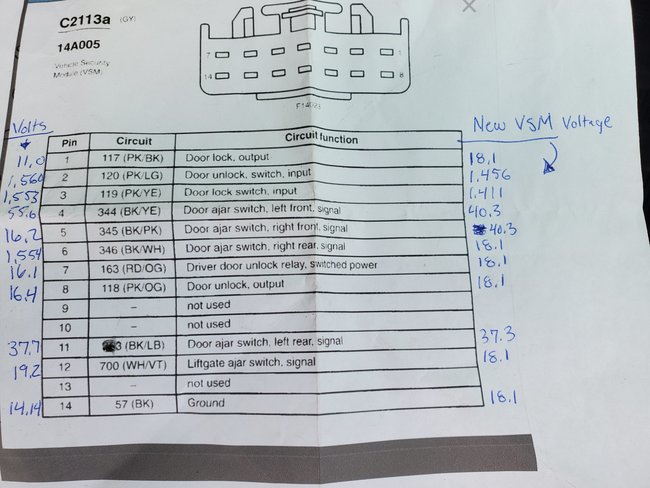 C2113a (GY)
14A005
Vehicle Security
Module (VSM)
7 1
14 8
F14023
Volts
New VSM Voltage
Pin Circuit Circuit function
11.0 1 117 (PK/BK) Door lock, output 18.1
1.560 2 120 (PK/LG) Door unlock, switch, input 1.456
1.553 3 119 (PK/YE) Door lock switch, input 1.411
55.6 4 344 (BK/YE) Door ajar switch, left front, signal 40.3
16.2 5 345 (BK/PK) Door ajar switch, right front, signal 40.3
1.554 6 346 (BK/WH) Door ajar switch, right rear, signal 18.1
16.1 7 163 (RD/OG) Driver door unlock relay, switched power 18.1
16.4 8 118 (PK/OG) Door unlock, output 18.1
9 – not used
10 – not used
37.7 11 3 (BK/LB) Door ajar switch, left rear, signal 37.3
19.2 12 700 (WH/VT) Liftgate ajar switch, signal 18.1
13 – not used
14.14 14 57 (BK) Ground 18.1